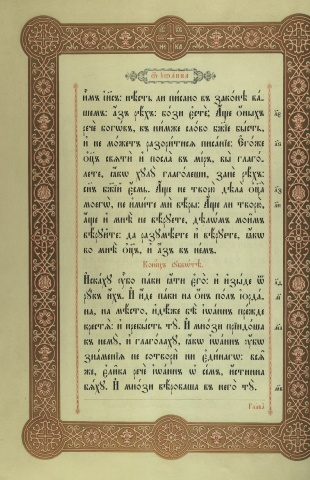 Ѿ Іѡанна
и҆̀мъ і҆и҃съ: нѣ́сть ли пи́сано въ зако́нѣ ва́-
шемъ: а҆́зъ рѣ́хъ: бо́зи є҆стѐ; А҆́ще ѻ҆́ныхъ
речѐ богѡ́въ, къ ни̑мже сло́во бж҃їе бы́сть,
и҆ не мо́жетъ разори́тисѧ писа́нїе: Є҆го́же
ѻ҆ц҃ъ свѧтѝ и҆ посла̀ въ мі́ръ, вы̀ глаго́-
лете, ꙗ҆́кѡ хꙋлꙋ̀ глаго́леши, занѐ рѣ́хъ:
сн҃ъ бж҃їй є҆́смь. А҆́ще не творю̀ дѣ́ла ѻ҆ц҃а̀
моегѡ̀, не и҆ми́те мѝ вѣ́ры: А҆́ще ли творю̀,
а҆́ще и҆ мнѣ̀ не вѣ́рꙋете, дѣлѡ́мъ мои̑мъ
вѣ́рꙋйте: да разꙋмѣ́ете и҆ вѣ́рꙋете, ꙗ҆́кѡ
во мнѣ̀ ѻ҆ц҃ъ, и҆ а҆́зъ въ не́мъ.
Коне́цъ сꙋббѡ́тѣ.
И҆ска́хꙋ ᲂу҆̀бо па́ки ꙗ҆́ти є҆го̀: и҆ и҆зы́де ѿ
рꙋ́къ и҆́хъ. И҆ и҆́де па́ки на ѻ҆́нъ по́лъ і҆ѻрда́-
на, на мѣ́сто, и҆дѣ́же бѣ̀ і҆ѡа́ннъ пре́жде
крестѧ̀: и҆ пребы́сть тꙋ̀. И҆ мно́зи прїидо́ша
къ немꙋ̀, и҆ глаго́лахꙋ, ꙗ҆́кѡ і҆ѡа́ннъ ᲂу҆́бѡ
зна́менїѧ не сотворѝ ни є҆ди́нагѡ: всѧ̑
же, є҆ли̑ка речѐ і҆ѡа́ннъ ѡ҆ се́мъ, и҆́стинна
бѧ́хꙋ. И҆ мно́зи вѣ́роваша въ него̀ тꙋ̀.
Глава̀